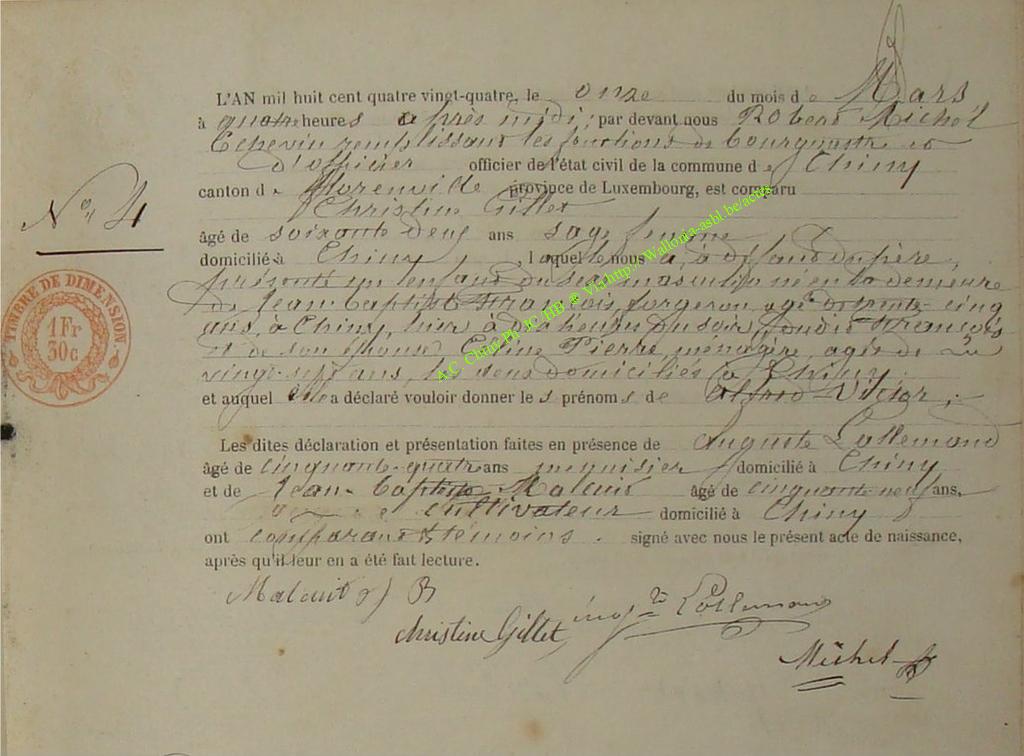 L'AN mil huit cent quatre vingt-quatre, le onze du mois de Mars
à quatre heures après midi; par devant nous Robert Michel
Echevin remplissant les fonctions de bourgmestre et
d'officier officier de l'état civil de la commune de Chiny
canton de Florenville province de Luxembourg, est comparu
Christine Gillet
N° 4
âgé de soixante deux ans sage femme
domicilié à Chiny, laquelle nous a, à défaut du père,
présenté un enfant du sexe masculin né en la demeure
de Jean Baptiste François, forgeron, agé de trente-cinq
ans, à Chiny, hier à dix heures du soir, fils de François
et de son épouse Céline Pierre, ménagère, agée de
vingt-sept ans, les deux domiciliés à Chiny
et auquel elle a déclaré vouloir donner les prénoms de Alfred-Victor,
TIMBRE DE DIMENSION
1 Fr
30 c
Les dites déclaration et présentation faites en présence de Auguste Lallemand
âgé de cinquante-quatre ans menuisier domicilié à Chiny
et de Jean-Baptiste Malcuit âgé de cinquante-neuf ans,
cultivateur domicilié à Chiny
ont comparant & témoins. signé avec nous le présent acte de naissance,
après qu'il leur en a été fait lecture.
Malcuit J B
Christine Gillet, Lallemand
Michel R
A.C. Chiny Ph JC HB @ Via http://Wallonia-asbl.be/actes